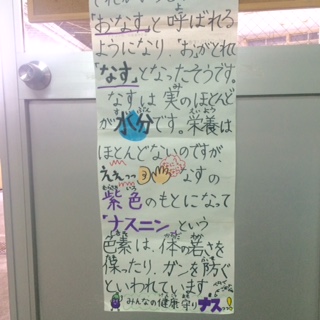 「おなす」と呼ばれる
ようになり、「お」がとれ
「なす」となったそうです。
なすは実のほとんど
が水分です。栄養は
ほとんどないのですが、
ええっっ なすの
紫色のもとになって
「ナスニン」という
色素は、体の若さを
保ったり、ガンを防ぐ
といわれています。
みんなの健康守りナス